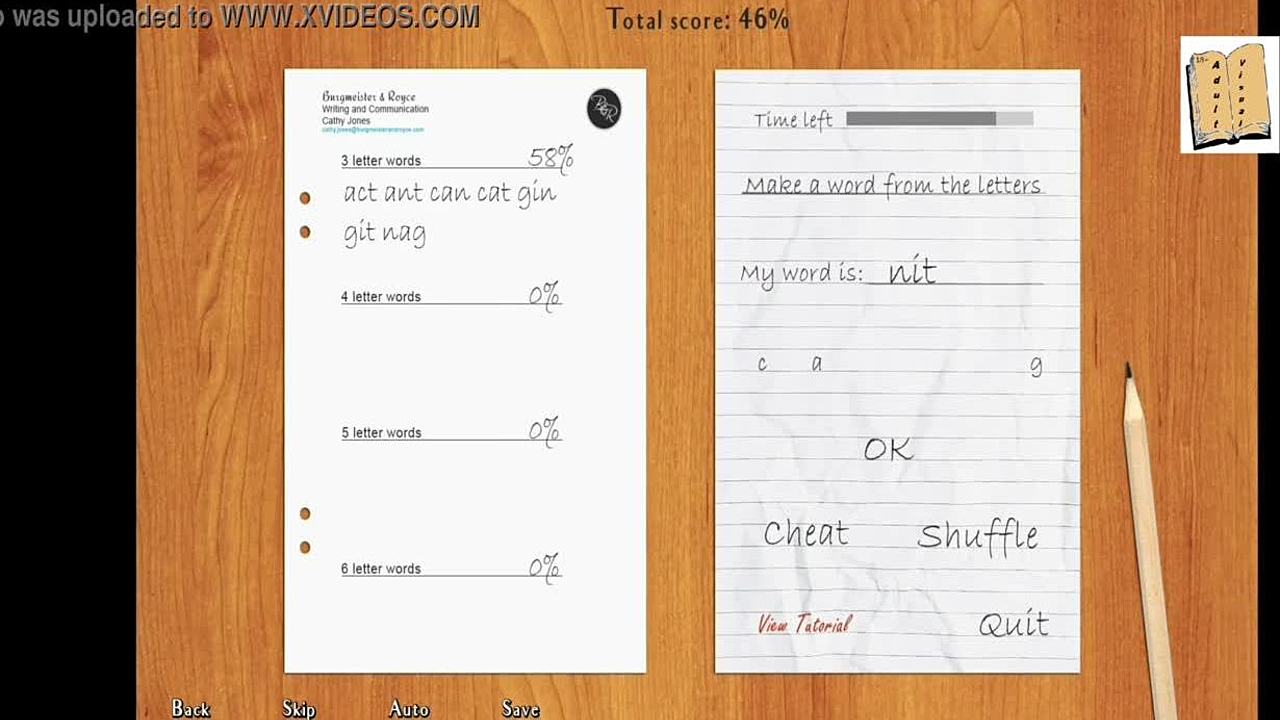 o was uploaded to WWW.XVIDEOS.COM
Total score: 46%
18+
Adult Visual
Burgmeister & Royce
Writing and Communication
Cathy Jones
cathy.jones@burgmeisterandroyce.com
B&R
3 letter words 58%
act ant can cat gin
git nag
4 letter words 0%
5 letter words 0%
6 letter words 0%
Time left
Make a word from the letters
My word is: nit
c a g
OK
Cheat Shuffle
View Tutorial Quit
Back Skip Auto Save